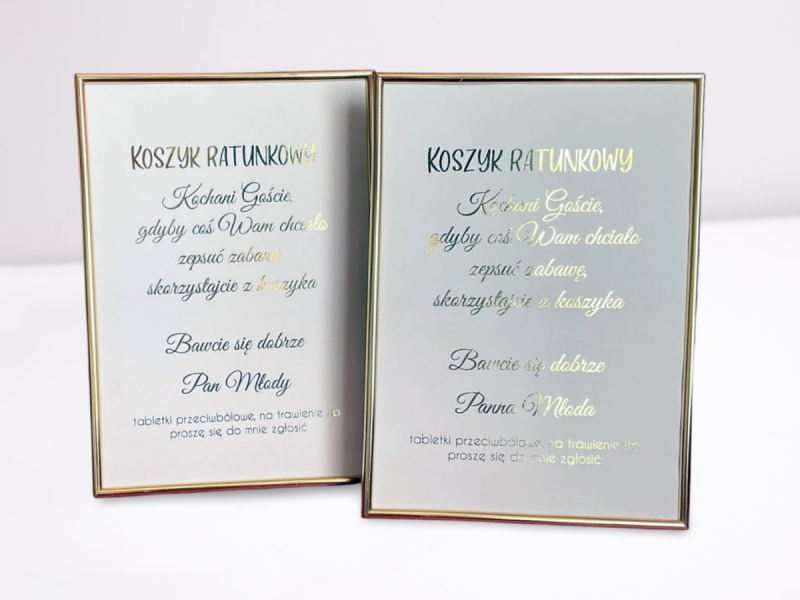 KOSZYK RATUNKOWY
Kochani Goście,
gdyby coś Wam chciało
zepsuć zabawę,
skorzystajcie z koszyka
Bawcie się dobrze
Pan Młody
tabletki przeciwbólowe, na trawienie itp
proszę się do mnie zgłosić
KOSZYK RATUNKOWY
Kochani Goście,
gdyby coś Wam chciało
zepsuć zabawę,
skorzystajcie z koszyka
Bawcie się dobrze
Panna Młoda
tabletki przeciwbólowe, na trawienie itp
proszę się do mnie zgłosić